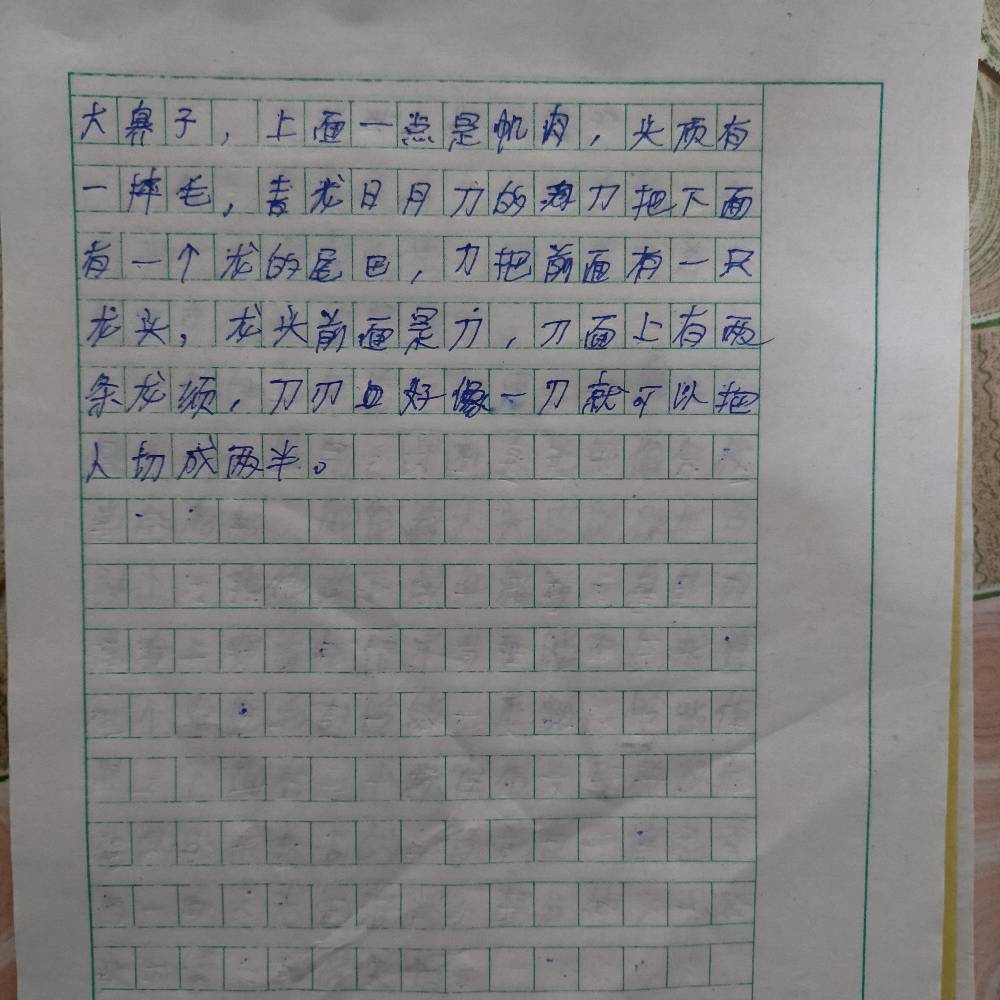 大鼻子，上面一点是帆肉，头顶有
一撮毛，青龙日月刀的刀把下面
有一个龙的尾巴，刀把前面有一只
龙头，龙头前面是刀，刀面上有两
条龙须，刀刃且好像一刀就可以把
人切成两半。